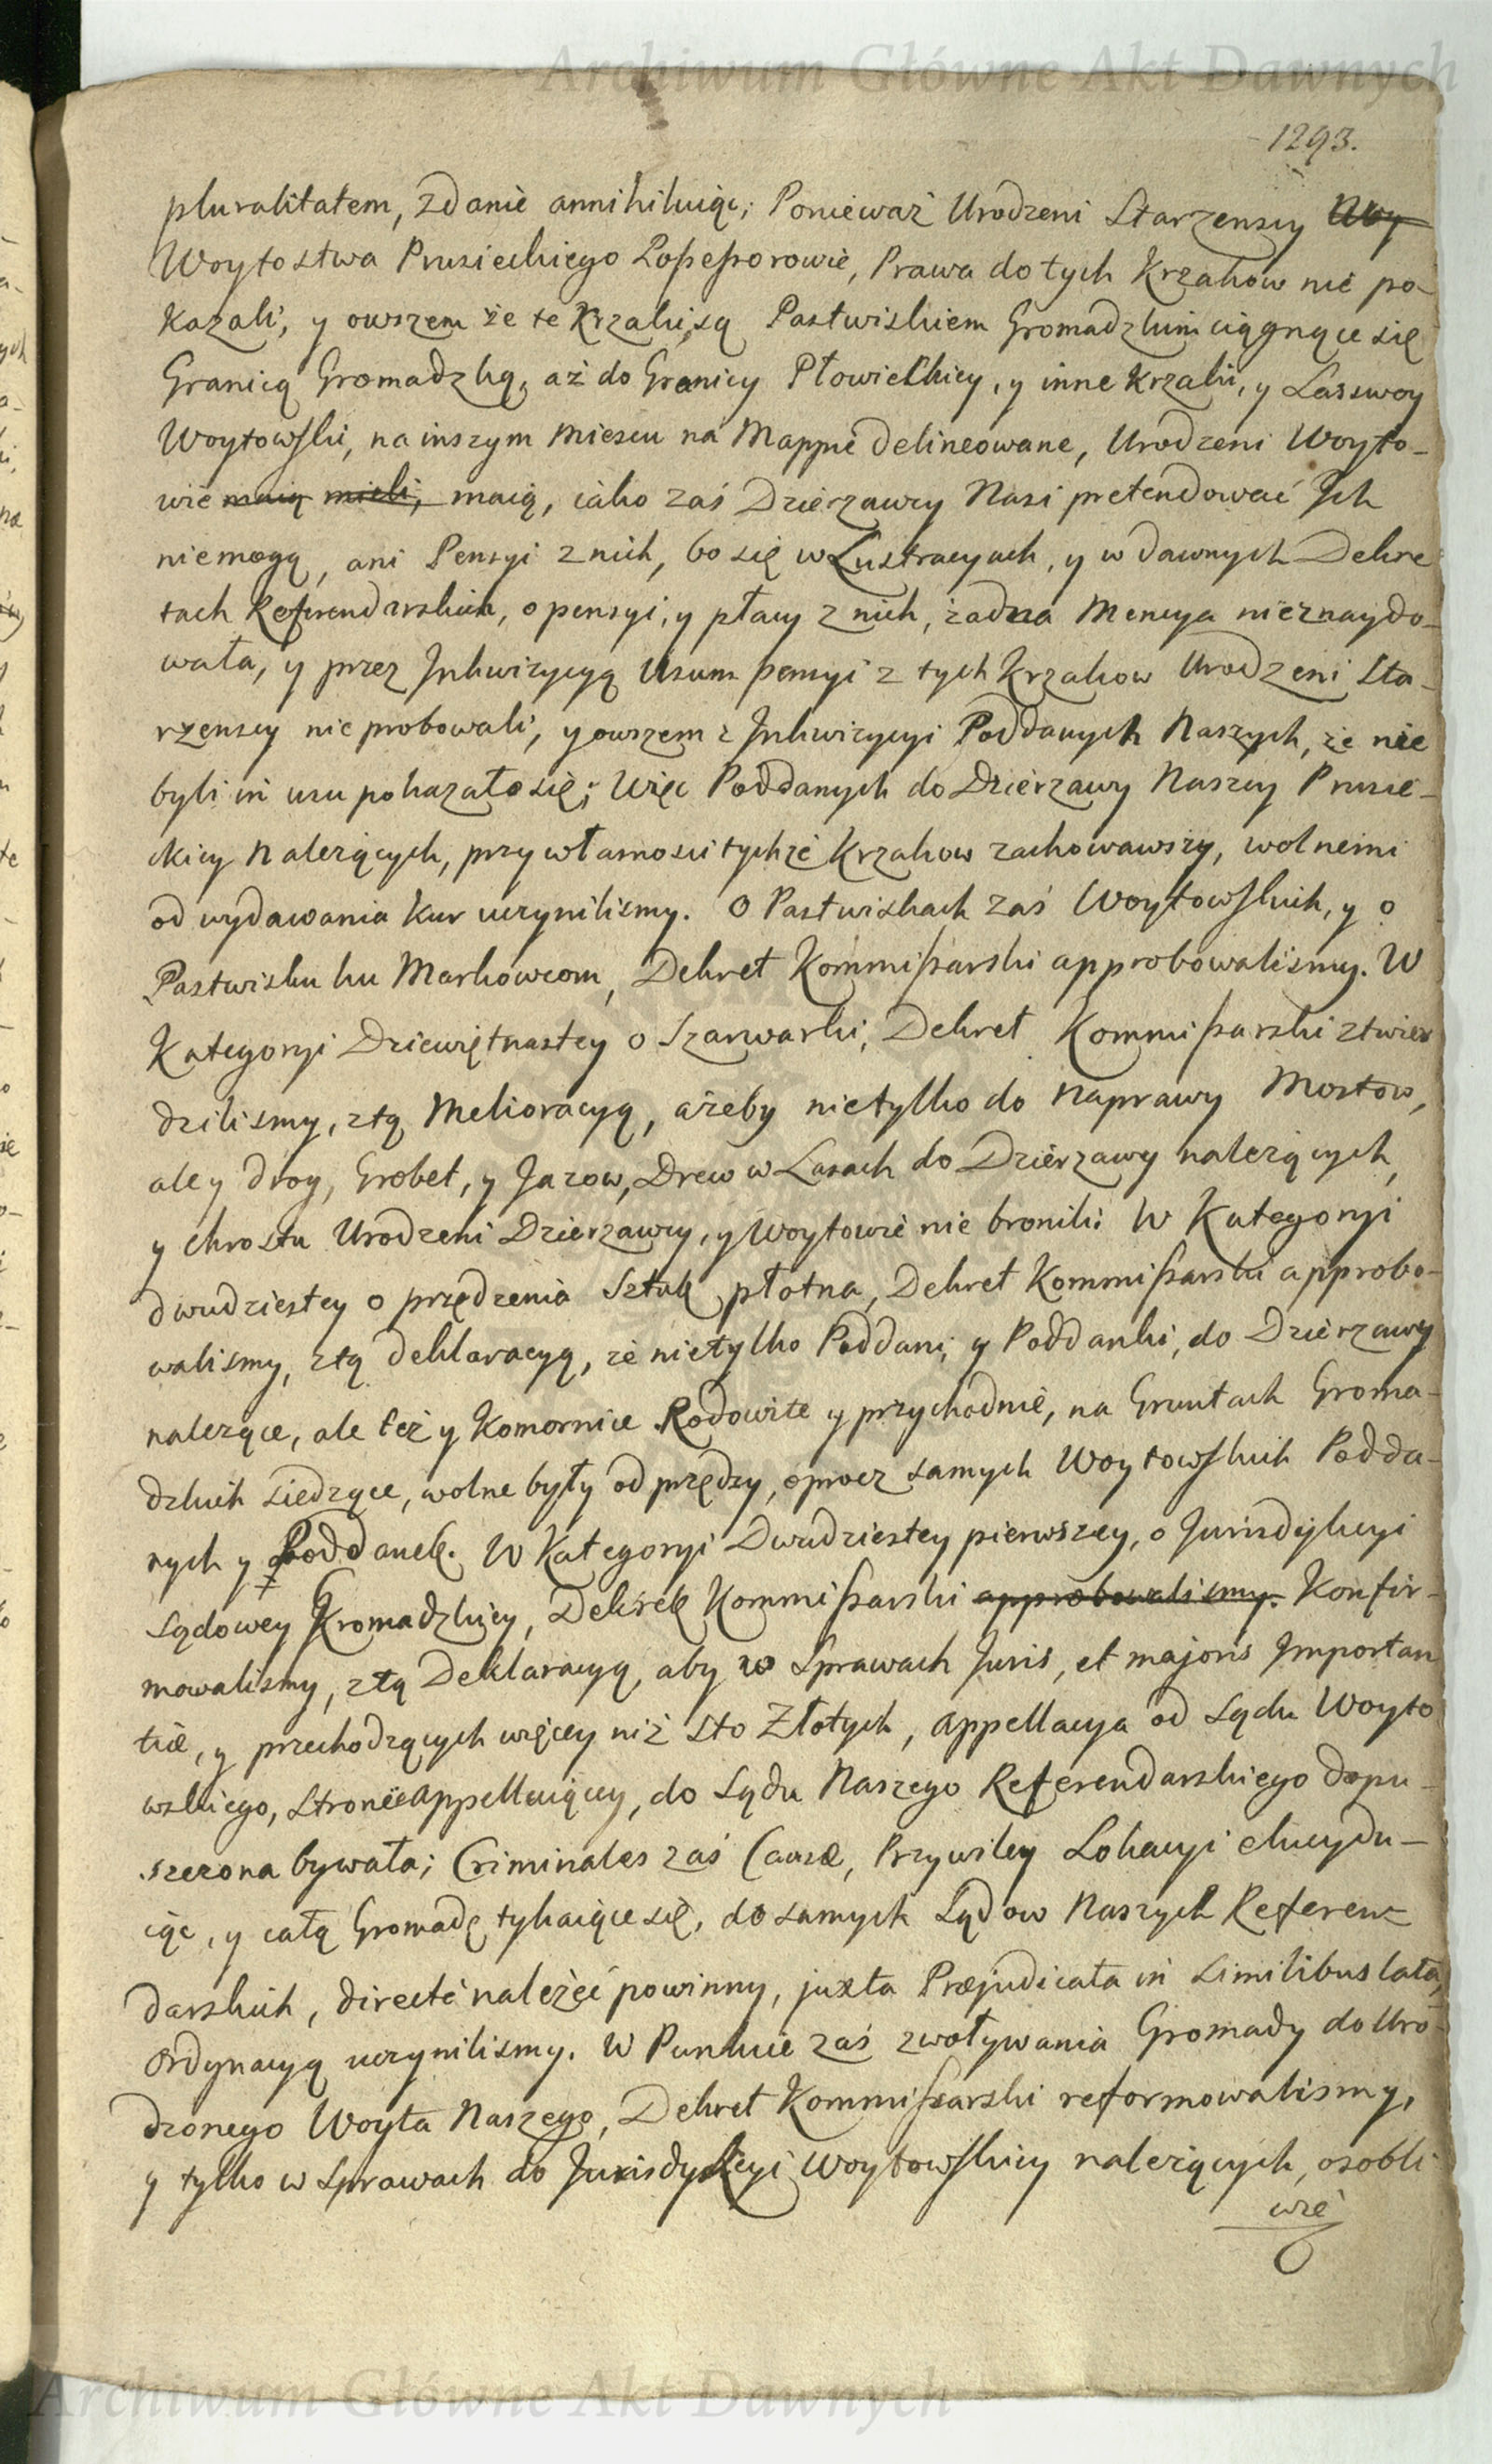 Archiwum Główne Akt Dawnych
1293.
pluralitatem, zdanie annihiluiąc; Ponieważ Urodzeni Starzenscy Woy
Woytostwa Prusieckiego Possessorowie, Prawa do tych Krzakow nie po-
kazali, y owszem że te Krzaki, są Pastwiskiem Gromadzkim ciągnące się
Granicą Gromadzką, aż do Granicy Płowieckiey, y inne Krzaki, y Las swoy
Woytowski, na inszym miescu na Mappie delineowane, Urodzeni Woyto-
wie maią mieli, maią, iako zaś Dzierzawcy Nasi pretendować Ich
niemogą, ani Pensyi z nich, bo się w Lustracyach, y w dawnych Dekre
tach Referendarskich, o pensyi, y płacy z nich, żadna Mencya nieznaydo-
wała, y przez Inkwizycyą Usum pensyi z tych Krzakow Urodzeni Sta-
rzenscy nie probowali, y owszem z Inkwizycyi Poddanych Naszych, że nie
byli in usu pokazało się; Więc Poddanych do Dzierzawy Naszey Prusie-
ckiey Należących, przy własnosci tychże Krzakow zachowawszy, wolnemi
od wydawania Kur uczynilismy. O Pastwiskach zaś Woytowskich, y o
Pastwisku ku Markowcom, Dekret Kommissarski approbowalismy. W
Kategoryi Dziewiętnastey o Szarwarki, Dekret Kommissarski ztwier
dzilismy, z tą Melioracyą, ażeby nietylko do Naprawy Mostow,
ale y drog, Grobel, y Jazow, Drew w Lasach do Dzierzawy należących,
y chrostu Urodzeni Dzierzawcy, y Woytowie nie bronili. W Kategoryi
dwudziestey o przędzenia Sztuk płotna, Dekret Kommissarski approbo-
walismy, z tą deklaracyą, że nietylko Poddani, y Poddanki, do Dzierzawy
należące, ale też y Komornice Rodowite y przychodnie, na Gruntach Groma-
dzkich siedzące, wolne były od przędzy, oprocz samych Woytowskich Podda-
nych y Poddanek. W Kategoryi Dwudziestey pierwszey, o Jurisdykcyi
Sądowey Gromadzkiey, Dekret Kommissarski approbowalismy. Konfir-
mowalismy, z tą Deklaracyą, aby w Sprawach Juris, et majoris Importan
tiæ, y przechodzących więcey niż Sto Złotych, appellacya od Sądu Woyto
wskiego, Stronie appelluiącey, do Sądu Naszego Referendarskiego dopu-
szczona bywała; Criminales zaś Causæ, Przywiley Lokacyi elucydu-
iąc, y całą Gromadę tykaiące się, do samych Sądow Naszych Referen-
darskich, directe należeć powinny, juxta Præjudicata in Similibus lata,
Ordynacyą uczynilismy. W Punkcie zaś zwoływania Gromady do Uro-
dzonego Woyta Naszego, Dekret Kommissarski reformowalismy,
y tylko w Sprawach do Jurisdykcyi Woytowskiey należących, osobli
wie
Archiwum Główne Akt Dawnych